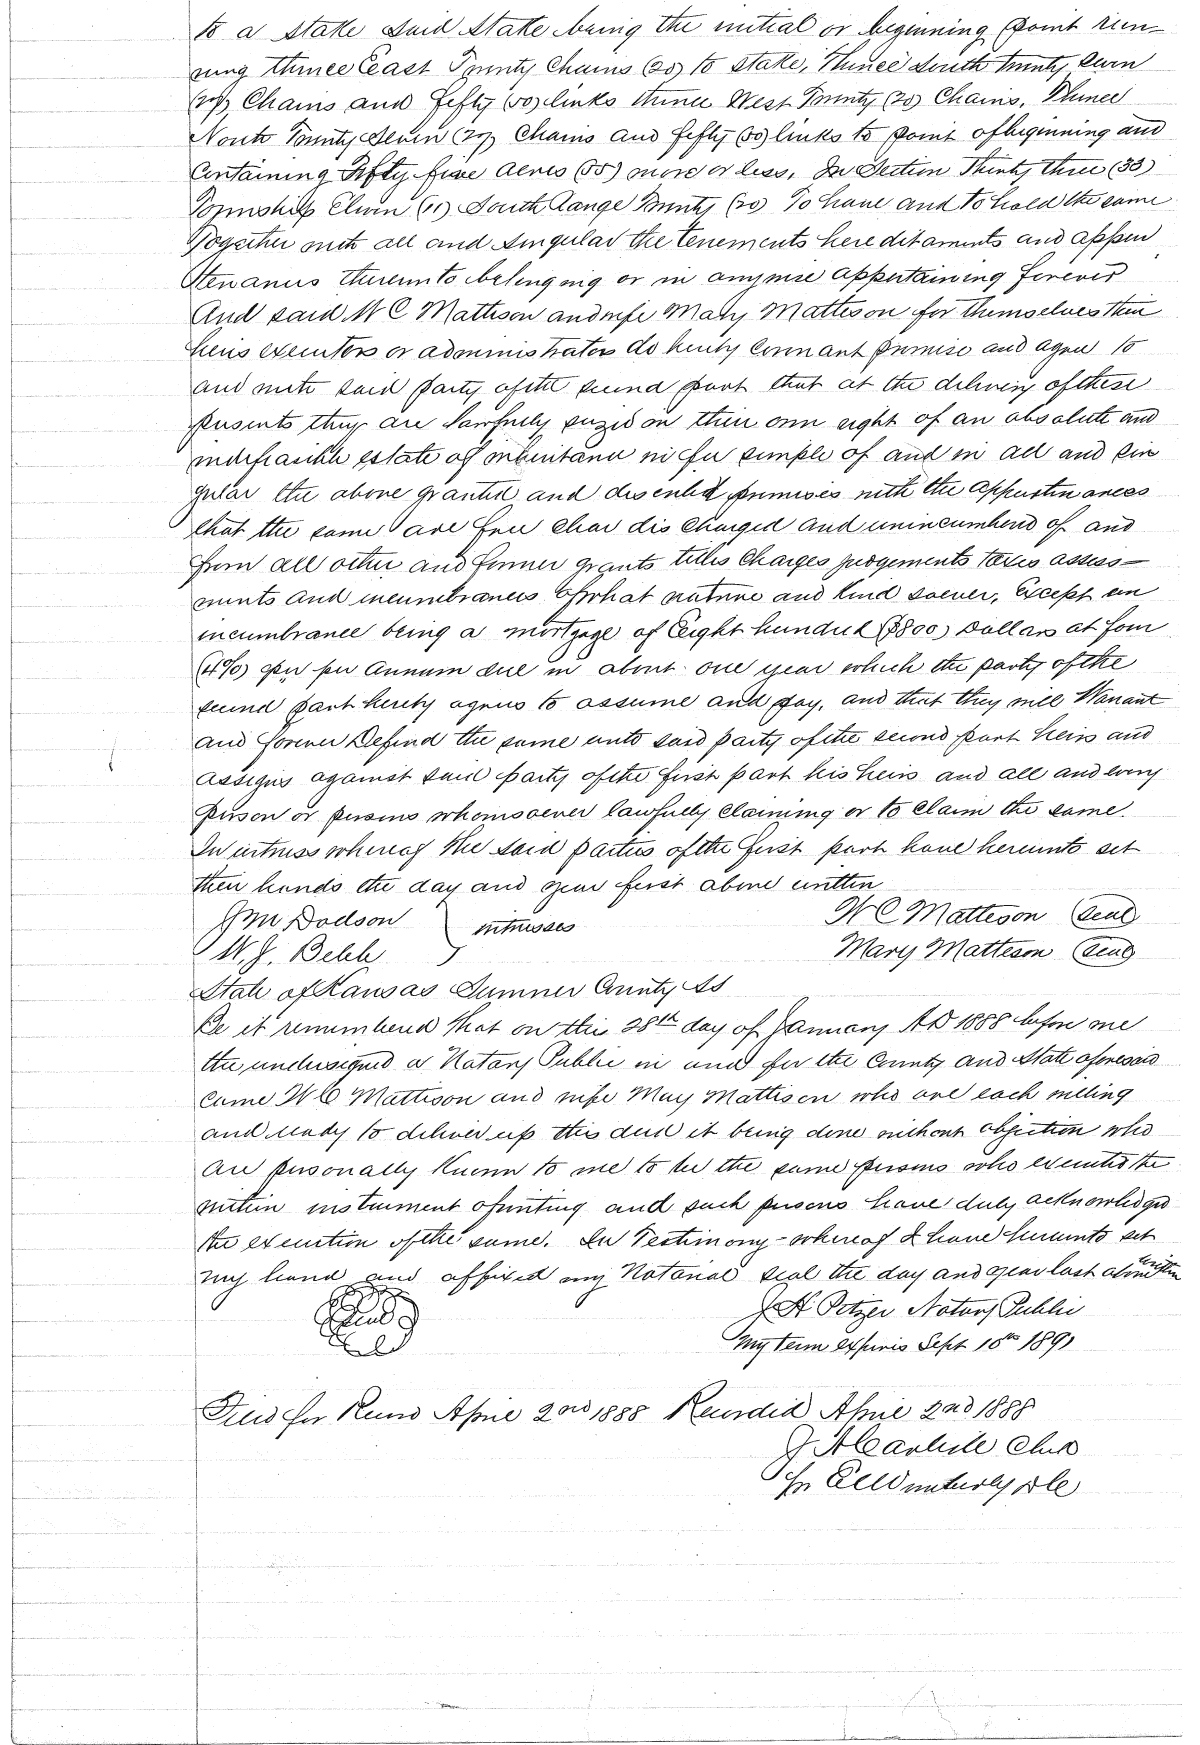 to a stake said stake being the initial or beginning point run-
ning thence East Twenty Chains (20) to stake, Thence South twenty seven
(27) Chains and fifty (50) links thence West Twenty (20) Chains, Thence
North Twenty Seven (27) Chains and fifty (50) links to point of beginning and
Containing Fifty five acres (55) more or less, In Section Thirty three (33)
Township Eleven (11) South Range Twenty (20) To have and to hold the same
Together with all and singular the tenements hereditaments and appur
tenances thereunto belonging or in anywise appertaining forever
And said W C Mattison and wife Mary Matteson for themselves their
heirs executors or administrators do hereby covenant promise and agree to
and with said party of the second part that at the delivery of these
presents they are lawfully seized on their own right of an absolute and
indefeasible estate of inheritance in fee simple of and in all and sin
gular the above granted and described premises with the appurtinances
that the same are free clear discharged and unincumbered of and
from all other and former grants titles Charges judgements taxes assess-
ments and incumbrances of what nature and kind soever, Except an
incumbrance being a mortgage of Eight hundred ($800) Dollars at four
(4%) per per Annum due in about one year which the party of the
second part hereby agrees to assume and pay, and that they will Warrant
and forever Defend the same unto said party of the second part heirs and
assigns against said party of the first part his heirs and all and every
person or persons whomsoever lawfully claiming or to claim the same.
In witness whereof the said parties of the first part have hereunto set
their hands the day and year first above written
Jm Dodson } witnesses W C Matteson (seal)
W. J. Bebb Mary Matteson (seal)
State of Kansas Sumner County ss
Be it remembered that on this 28th day of January AD 1888 before me
the undersigned a Notary Public in and for the County and State aforesaid
came W C Mattison and wife May Mattison who are each willing
and ready to deliver up this deed it being done without objection who
are personally known to me to be the same persons who executed the
within instrument of writing and such persons have duly acknowledged
the execution of the same. In Testimony-whereof I have hereunto set
my hand and affixed my Notarial seal the day and year last above written
Seal J H Petzer Notary Public
My term expires Sept 10th 1891
Filed for Record April 2nd 1888 Recorded April 2nd 1888
J A Carlisle Clerk